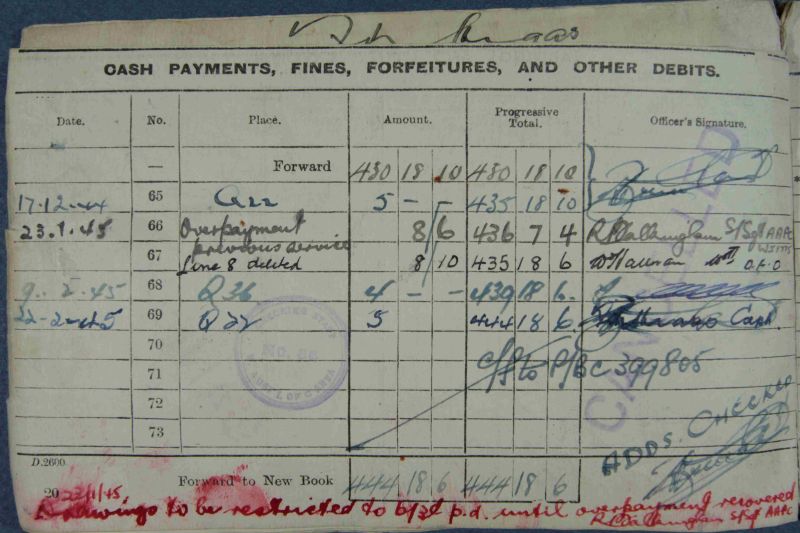 CASH PAYMENTS, FINES, FORFEITURES, AND OTHER DEBITS.
Date. No. Place. Amount. Progressive Total. Officer's Signature.
— Forward 430 18 10 430 18 10
17.12.44 65 Q22 5 - - 435 18 10
23.1.45 66 Overpayment previous service 8/6 436 7 4 S/Sgt AAPC
67 Line 8 deleted 8/10 435 18 6
9. 2.45 68 Q36 4 - - 439 18 6.
22-2-45 69 Q22 5 444 18 6. Capt.
70
71 C/f to P/BC 399805
72
73
CANCELLED
ADDS. CHECKED
D.2600.
20 Forward to New Book 444 18 6 444 18 6
23/1/45.
Drawings to be restricted to 6/3d p.d. until overpayment recovered
S/Sgt AAPC